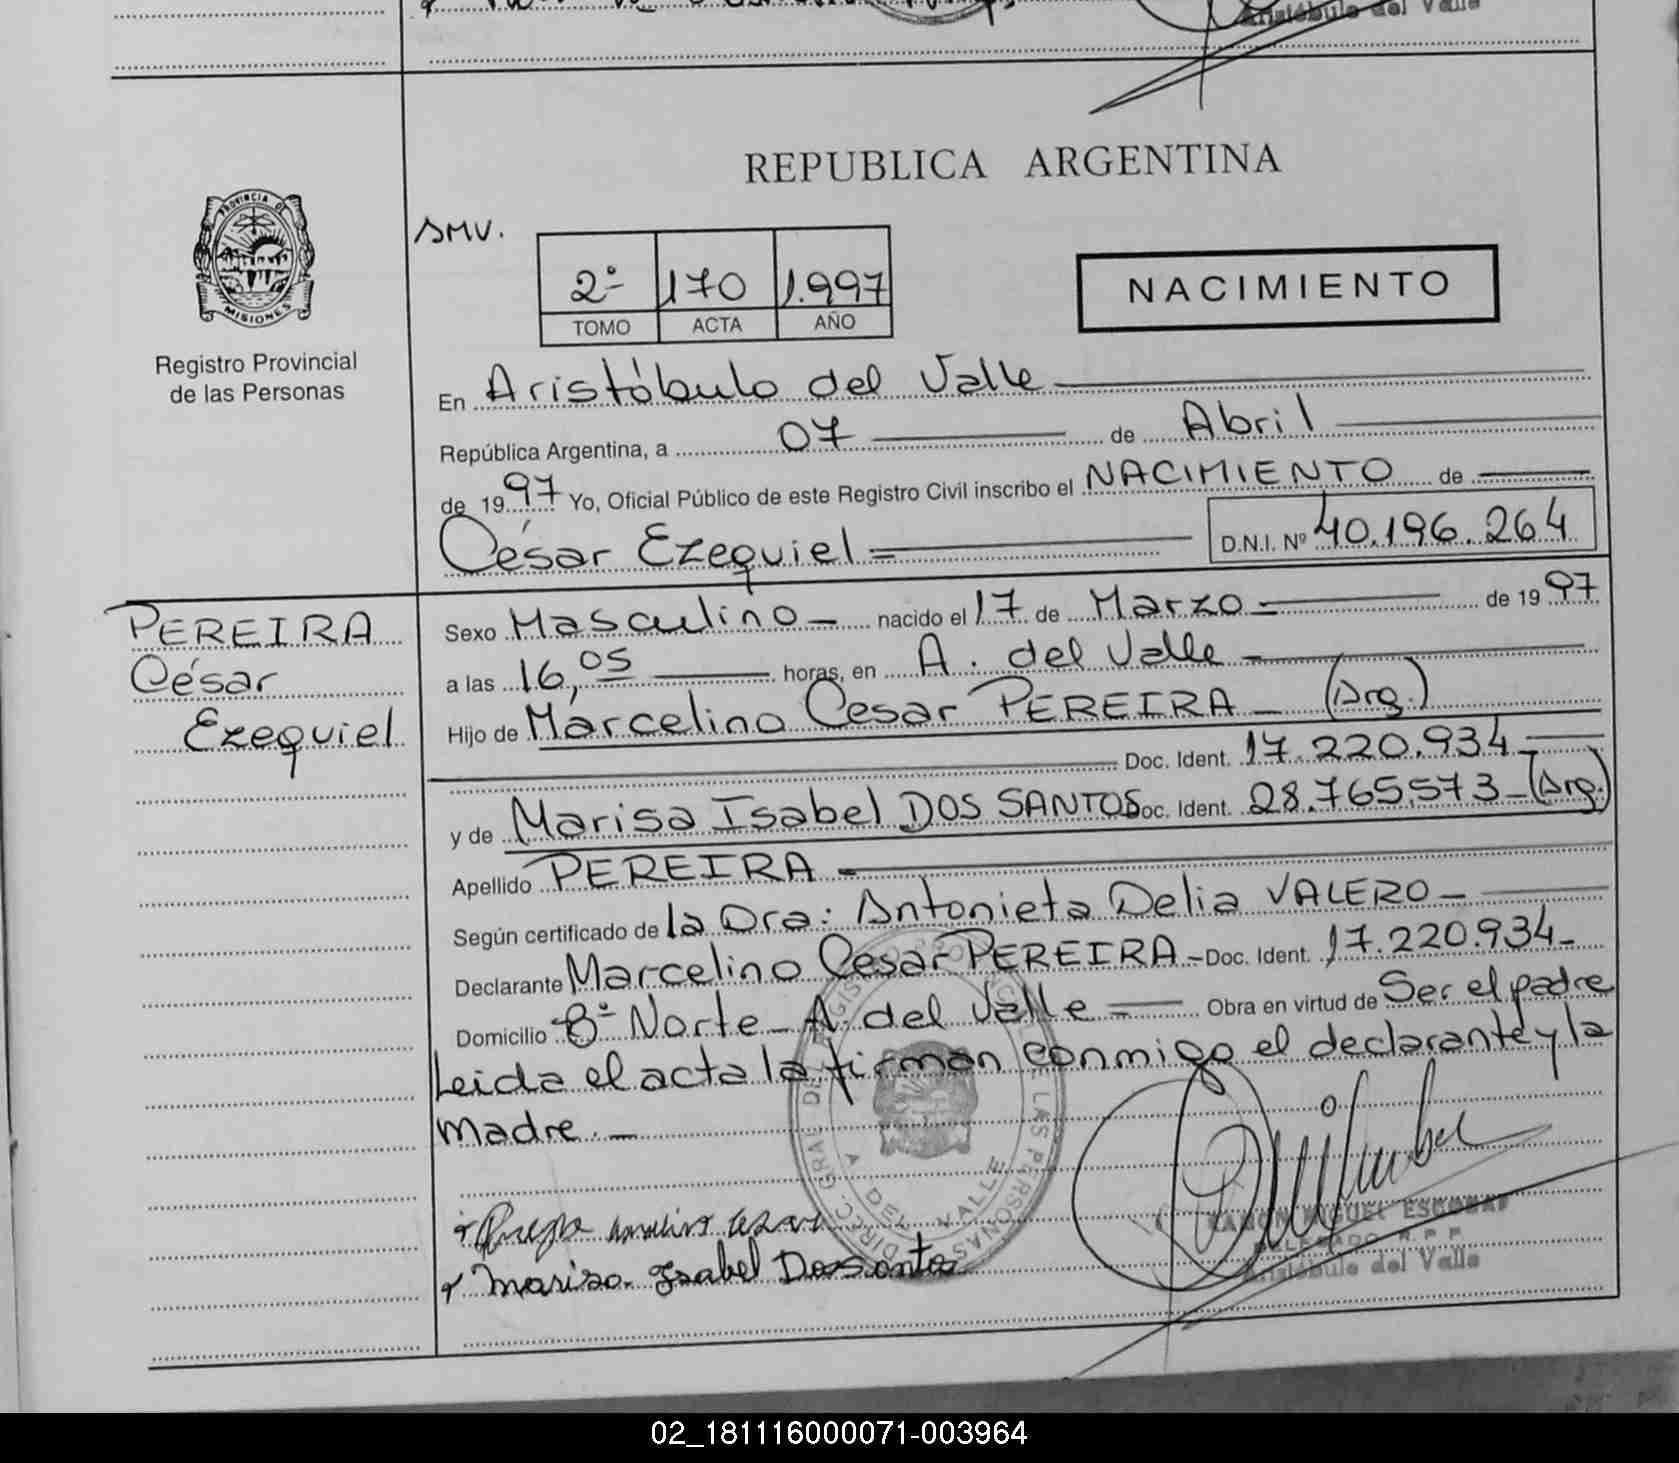 Aristóbulo del Valle
REPUBLICA ARGENTINA
PROVINCIA DE
MISIONES
Registro Provincial
de las Personas
SMV.
2º 170 1.997
TOMO ACTA AÑO
NACIMIENTO
En Aristóbulo del Valle
República Argentina, a 07 de Abril
de 1997 Yo, Oficial Público de este Registro Civil inscribo el NACIMIENTO de
César Ezequiel D.N.I. Nº 40.196.264
PEREIRA
César
Ezequiel
Sexo Masculino nacido el 17 de Marzo de 1997
a las 16,05 horas, en A. del Valle
Hijo de Marcelino Cesar PEREIRA (Arg.)
Doc. Ident. 17.220.934
y de Marisa Isabel DOS SANTOS Doc. Ident. 28.765.573 (Arg.)
Apellido PEREIRA
Según certificado de la Dra: Antonieta Delia VALERO
Declarante Marcelino Cesar PEREIRA Doc. Ident. 17.220.934
Domicilio Bº Norte A. del Valle Obra en virtud de Ser el padre
Leida el acta la firman conmigo el declarante y la
madre.
DIRECC. GRAL. DE REGISTRO PROVINCIAL DE LAS PERSONAS
A. DEL VALLE
Marisa Isabel Dos Santos
RAMON MIGUEL ESCOBAR
DELEGADO R. P. P.
Aristóbulo del Valle
02_181116000071-003964